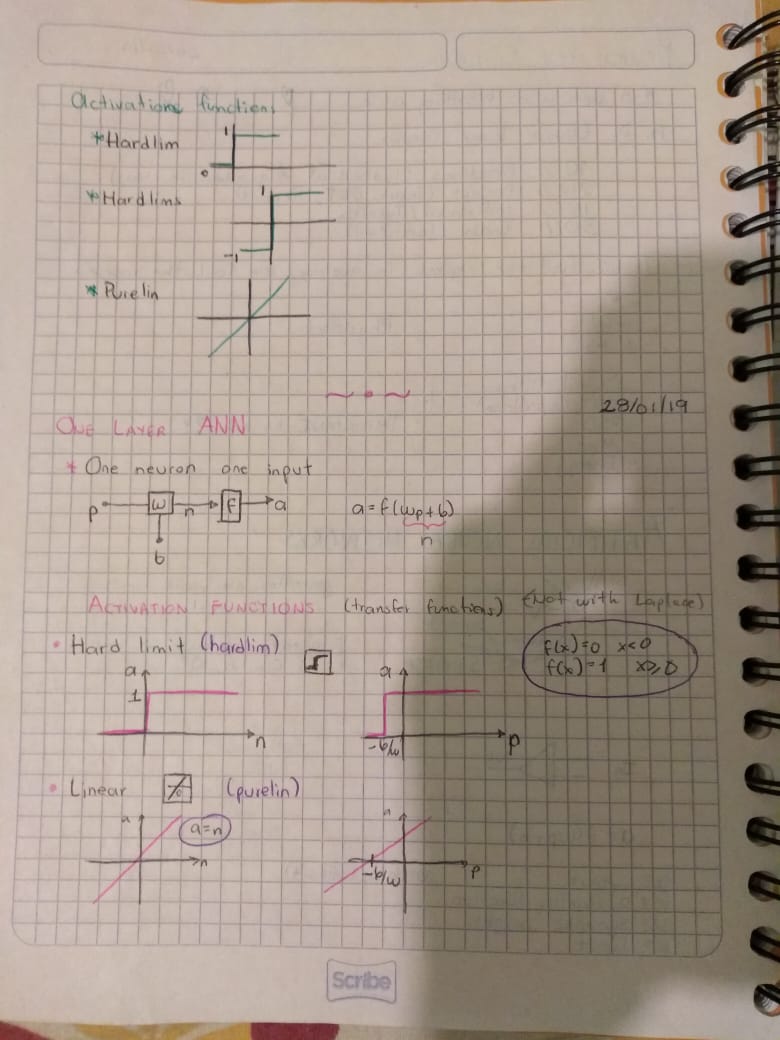 Activation functions
* Hardlim
1
0
* Hardlims
1
-1
* Purelin
~ • ~
28/01/19
ONE LAYER ANN
* One neuron one input
p w n f a
b
a=f(wp+b)
n
ACTIVATION FUNCTIONS (transfer functions) (Not with Laplace)
• Hard limit (hardlim)
f(x)=0 x<0
f(x)=1 x≥0
a
1
n
a
-b/w
p
• Linear (purelin)
a
a=n
n
a
-b/w
p
Scribe